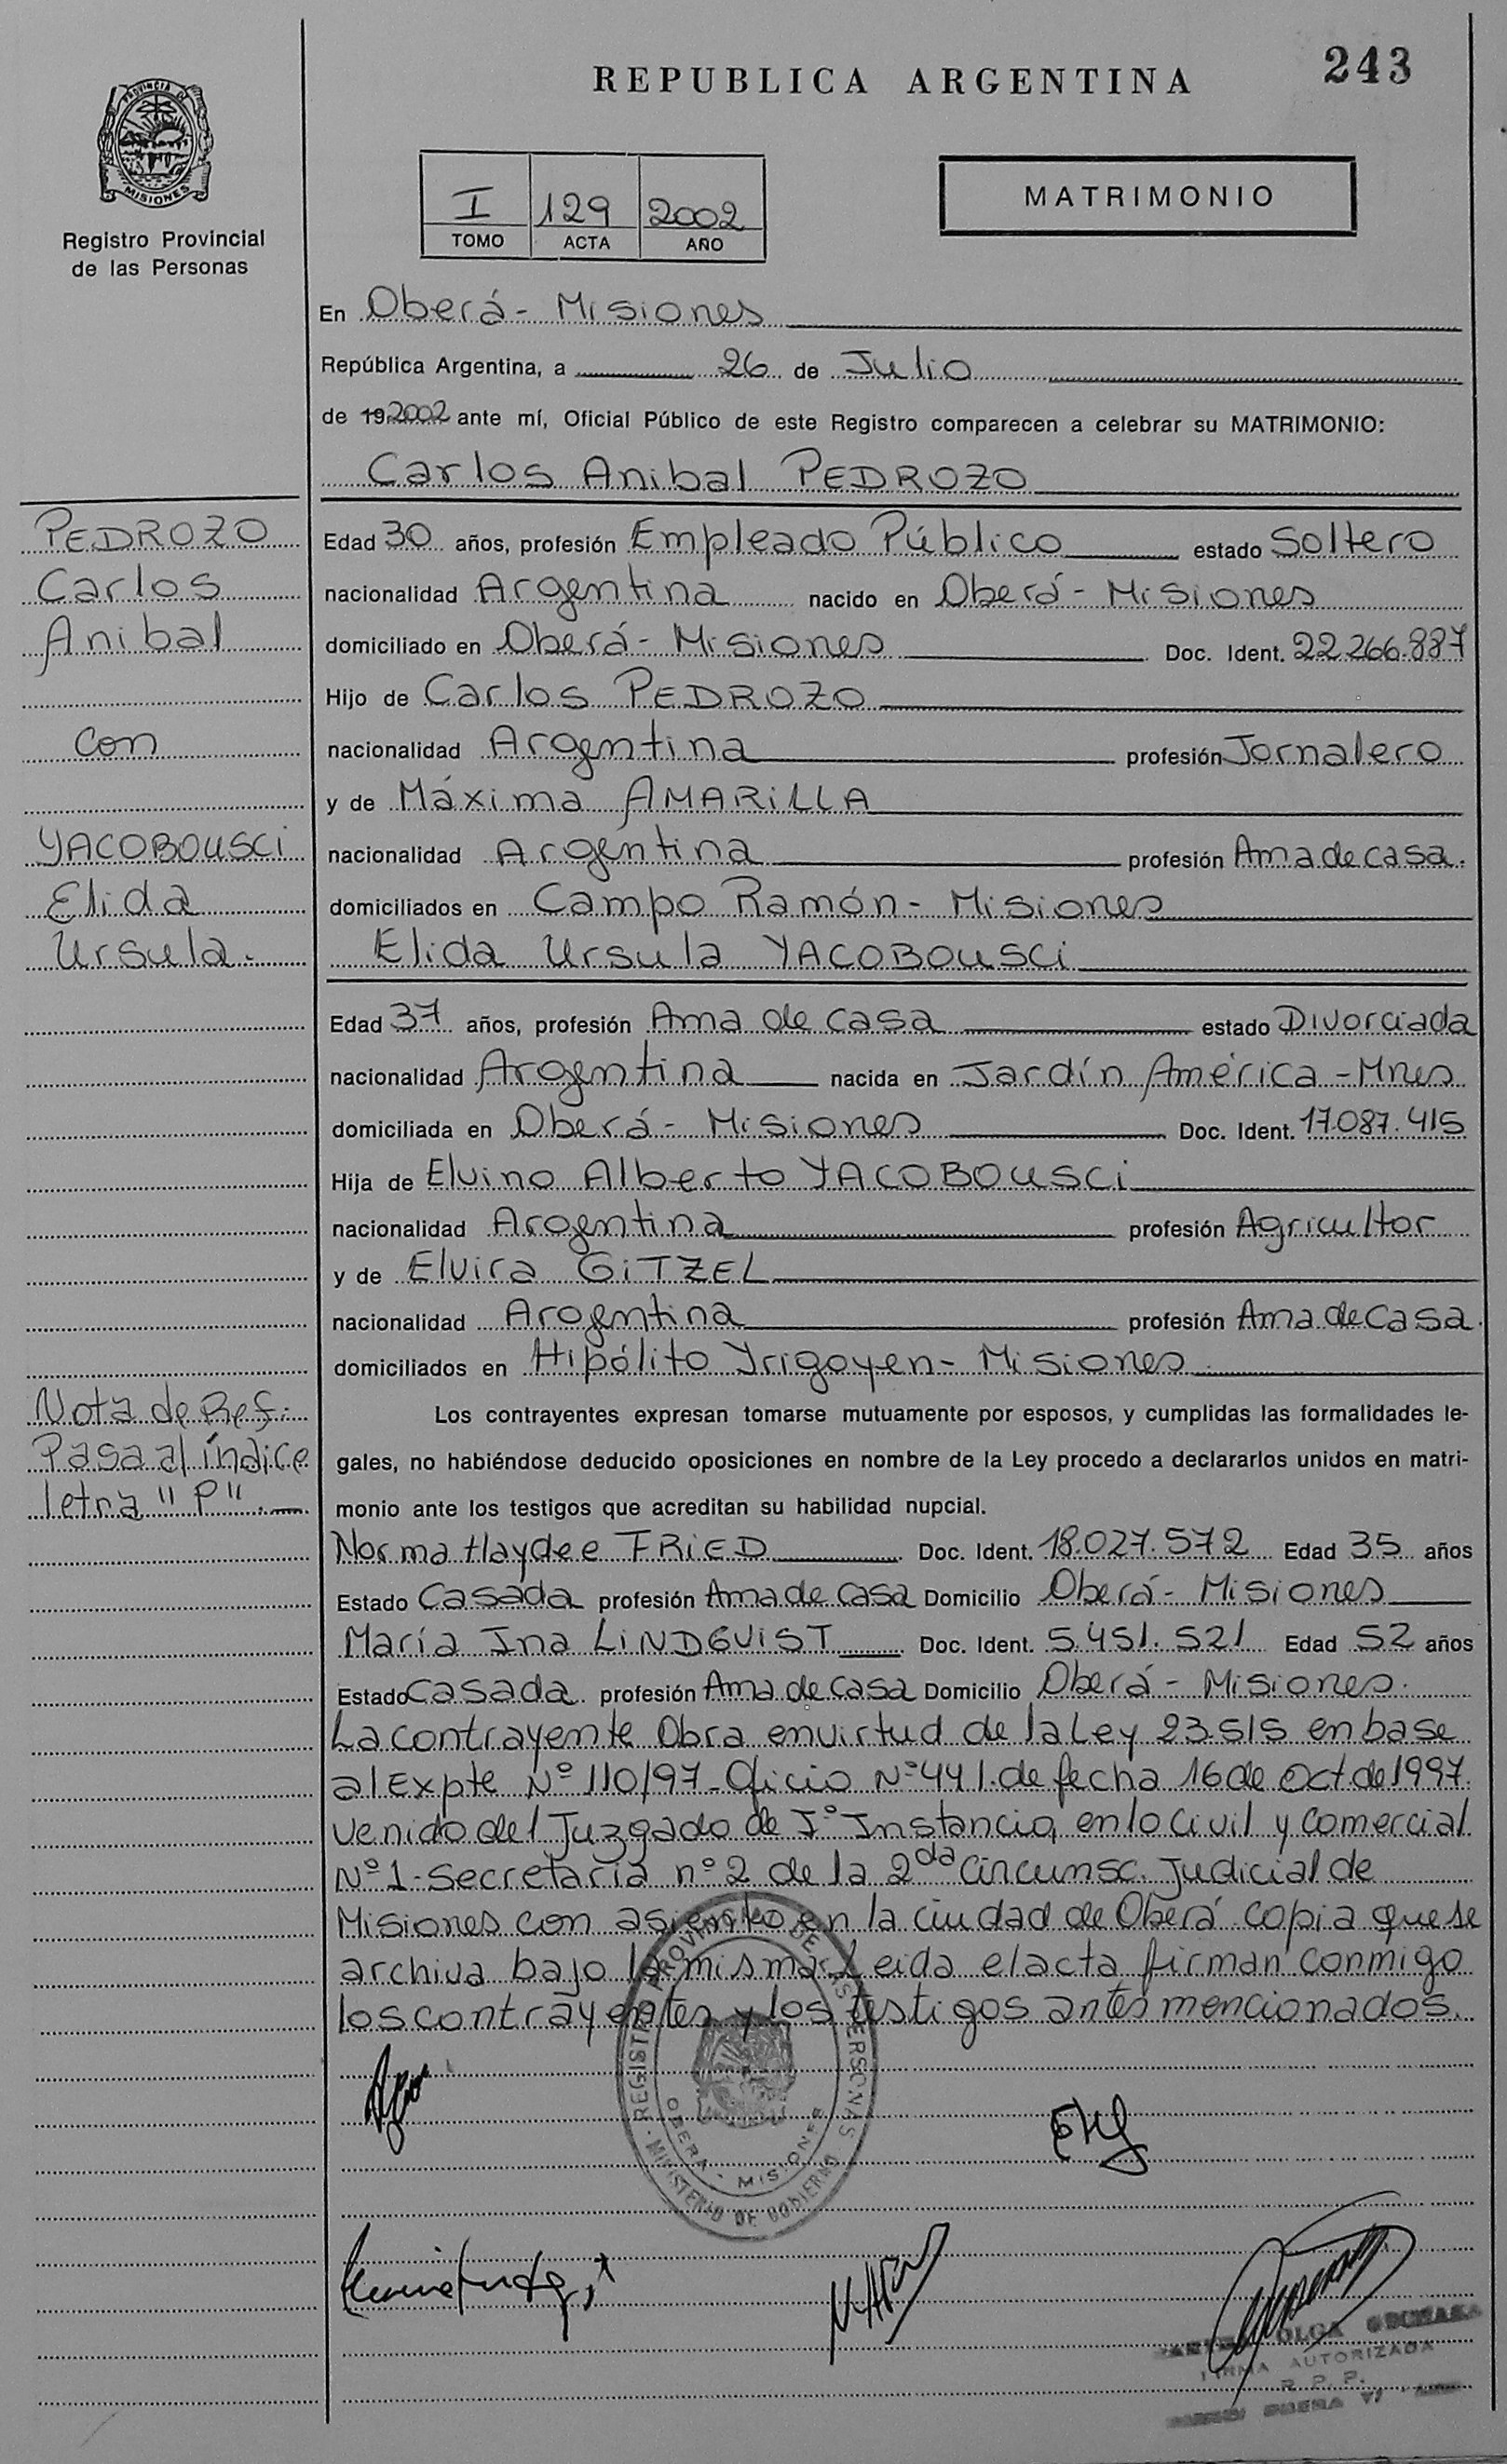 243
REPUBLICA ARGENTINA
PROVINCIA DE
MISIONES
Registro Provincial
de las Personas
I 129 2002
TOMO ACTA AÑO
MATRIMONIO
En Oberá - Misiones
República Argentina, a 26 de Julio
de 19 2002 ante mí, Oficial Público de este Registro comparecen a celebrar su MATRIMONIO:
Carlos Anibal PEDROZO
PEDROZO
Carlos
Anibal
con
YACOBOUSCi
Elida
Ursula.
Edad 30 años, profesión Empleado Público estado Soltero
nacionalidad Argentina nacido en Oberá - Misiones
domiciliado en Oberá - Misiones Doc. Ident. 22.266.887
Hijo de Carlos PEDROZO
nacionalidad Argentina profesión Jornalero
y de Máxima AMARiLLA
nacionalidad Argentina profesión Ama de casa.
domiciliados en Campo Ramón - Misiones
Elida Ursula YACOBOUSCi
Edad 37 años, profesión Ama de casa estado Divorciada
nacionalidad Argentina nacida en Jardín América - Mnes
domiciliada en Oberá - Misiones Doc. Ident. 17.087.415
Hija de Elvino Alberto YACOBOUSCi
nacionalidad Argentina profesión Agricultor
y de Elvira GiTZEL
nacionalidad Argentina profesión Ama de Casa.
domiciliados en Hipólito Yrigoyen - Misiones
Nota de Ref:
Pasa al índice
letra "P".
Los contrayentes expresan tomarse mutuamente por esposos, y cumplidas las formalidades le-
gales, no habiéndose deducido oposiciones en nombre de la Ley procedo a declararlos unidos en matri-
monio ante los testigos que acreditan su habilidad nupcial.
Norma Haydee FRiED Doc. Ident. 18.027.572 Edad 35 años
Estado Casada profesión Ama de casa Domicilio Oberá - Misiones
María Ina LiNDGUiST Doc. Ident. 5.451.521 Edad 52 años
Estado Casada profesión Ama de casa Domicilio Oberá - Misiones.
La contrayente Obra en virtud de la Ley 23.515 en base
al Expte Nº 110/97 - Oficio Nº 441. de fecha 16 de Oct de 1997.
venido del Juzgado de Iº Instancia, en lo Civil y Comercial
Nº 1 - Secretaría nº 2 de la 2da Circunsc. Judicial de
Misiones con asiento en la ciudad de Oberá copia que se
archiva bajo la misma. Leida el acta firman conmigo
los contrayentes y los testigos antes mencionados.
REGISTRO PROVINCIAL DE LAS PERSONAS
OBERA - MISIONES
MINISTERIO DE GOBIERNO
OLGA
FIRMA AUTORIZADA
R. P. P.